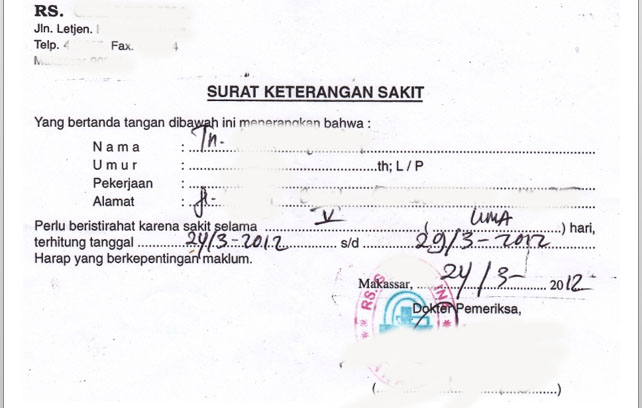 RS.
Jln. Letjen.
Telp. 4 Fax. 4
SURAT KETERANGAN SAKIT
Yang bertanda tangan dibawah ini menerangkan bahwa :
Nama : Tn.
Umur : th; L / P
Pekerjaan :
Alamat : Jl.
Perlu beristirahat karena sakit selama V ( LIMA ) hari,
terhitung tanggal 24/3-2012 s/d 29/3-2012
Harap yang berkepentingan maklum.
Makassar, 24/3- 2012
RS. S
Dokter Pemeriksa,
( )